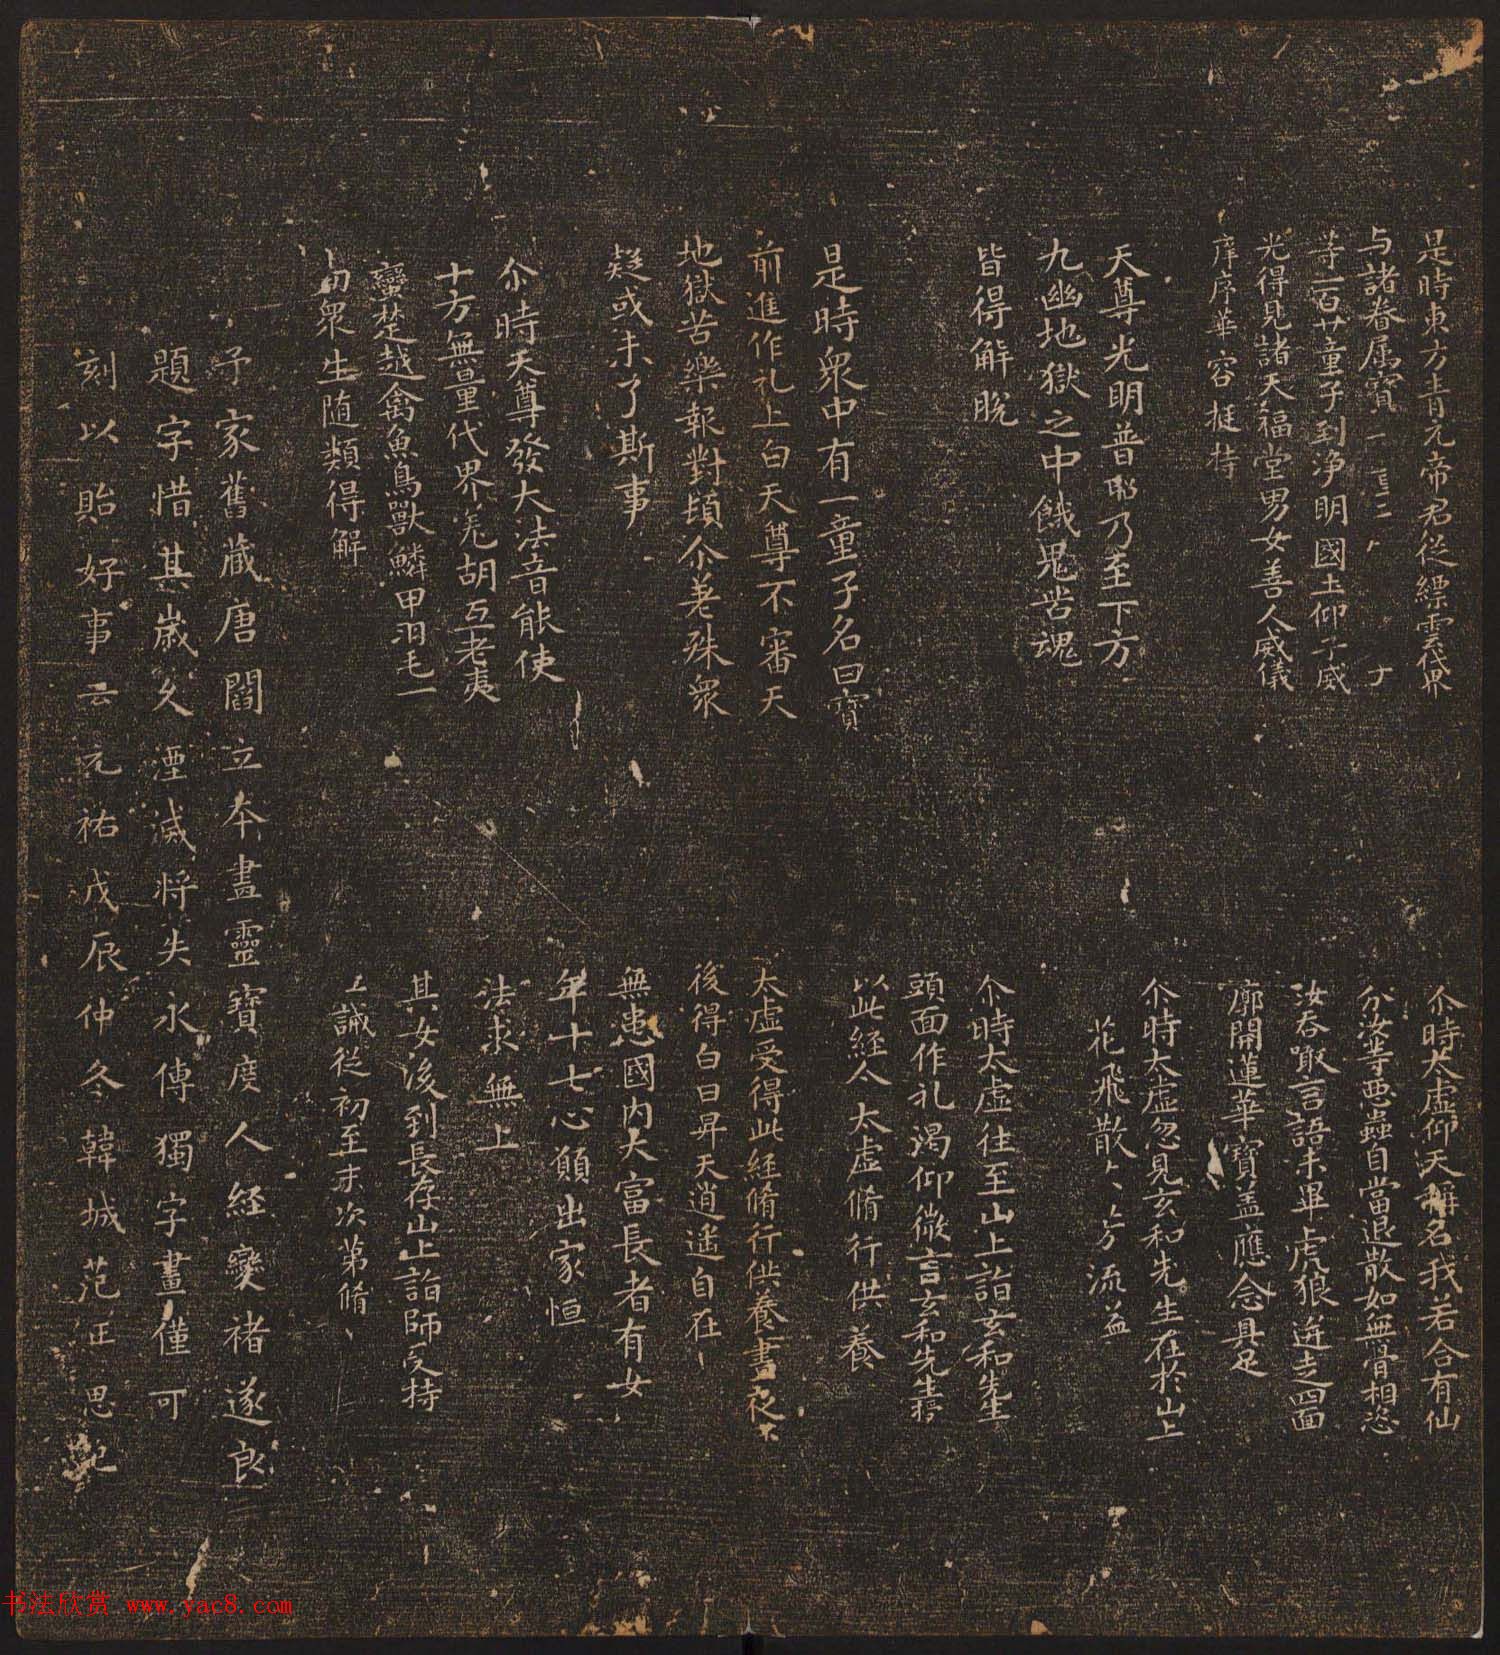 是時東方青元帝君從縹雲代界
与諸眷属寶一
等一百廿童子到净明國土仰子威
光得見諸天福堂男女善人威儀
庠序華容挺持
天尊光明普照乃至下方
九幽地獄之中餓鬼苦魂
皆得解脫
是時衆中有一童子名曰寶
前進作礼上白天尊不審天
地獄苦樂報對頓尒差殊衆
疑或未了斯事
尒時天尊發大法音能使
十方無量代界羌胡互老夷
蠻楚越禽魚鳥獸鱗甲羽毛一
切衆生随類得解
尒時太虚仰天稱名我若合有仙
分汝等惡蟲自當退散如無骨相恣
汝吞噉言語未畢虎狼迸走四面
廓開蓮華寶盖應念具足
尒時太虚忽見玄和先生在於山上
花飛散流益
尒時太虚往至山上詣玄和先生
頭面作礼渴仰微言玄和先生授
以此經令太虚脩行供養
太虚受得此經脩行供養晝夜不
後得白日昇天逍遥自在
無恚國内大富長者有女
年十七心願出家恒
法求無上
其女後到長存山上詣師受持
誡從初至末次第脩
予家舊藏唐閻立本畫靈寶度人經變褚遂良
題字惜其歲久湮滅將失永傳獨字畫僅可
刻以貽好事云元祐戊辰仲冬韓城范正思記
书法欣赏 www.yac8.com